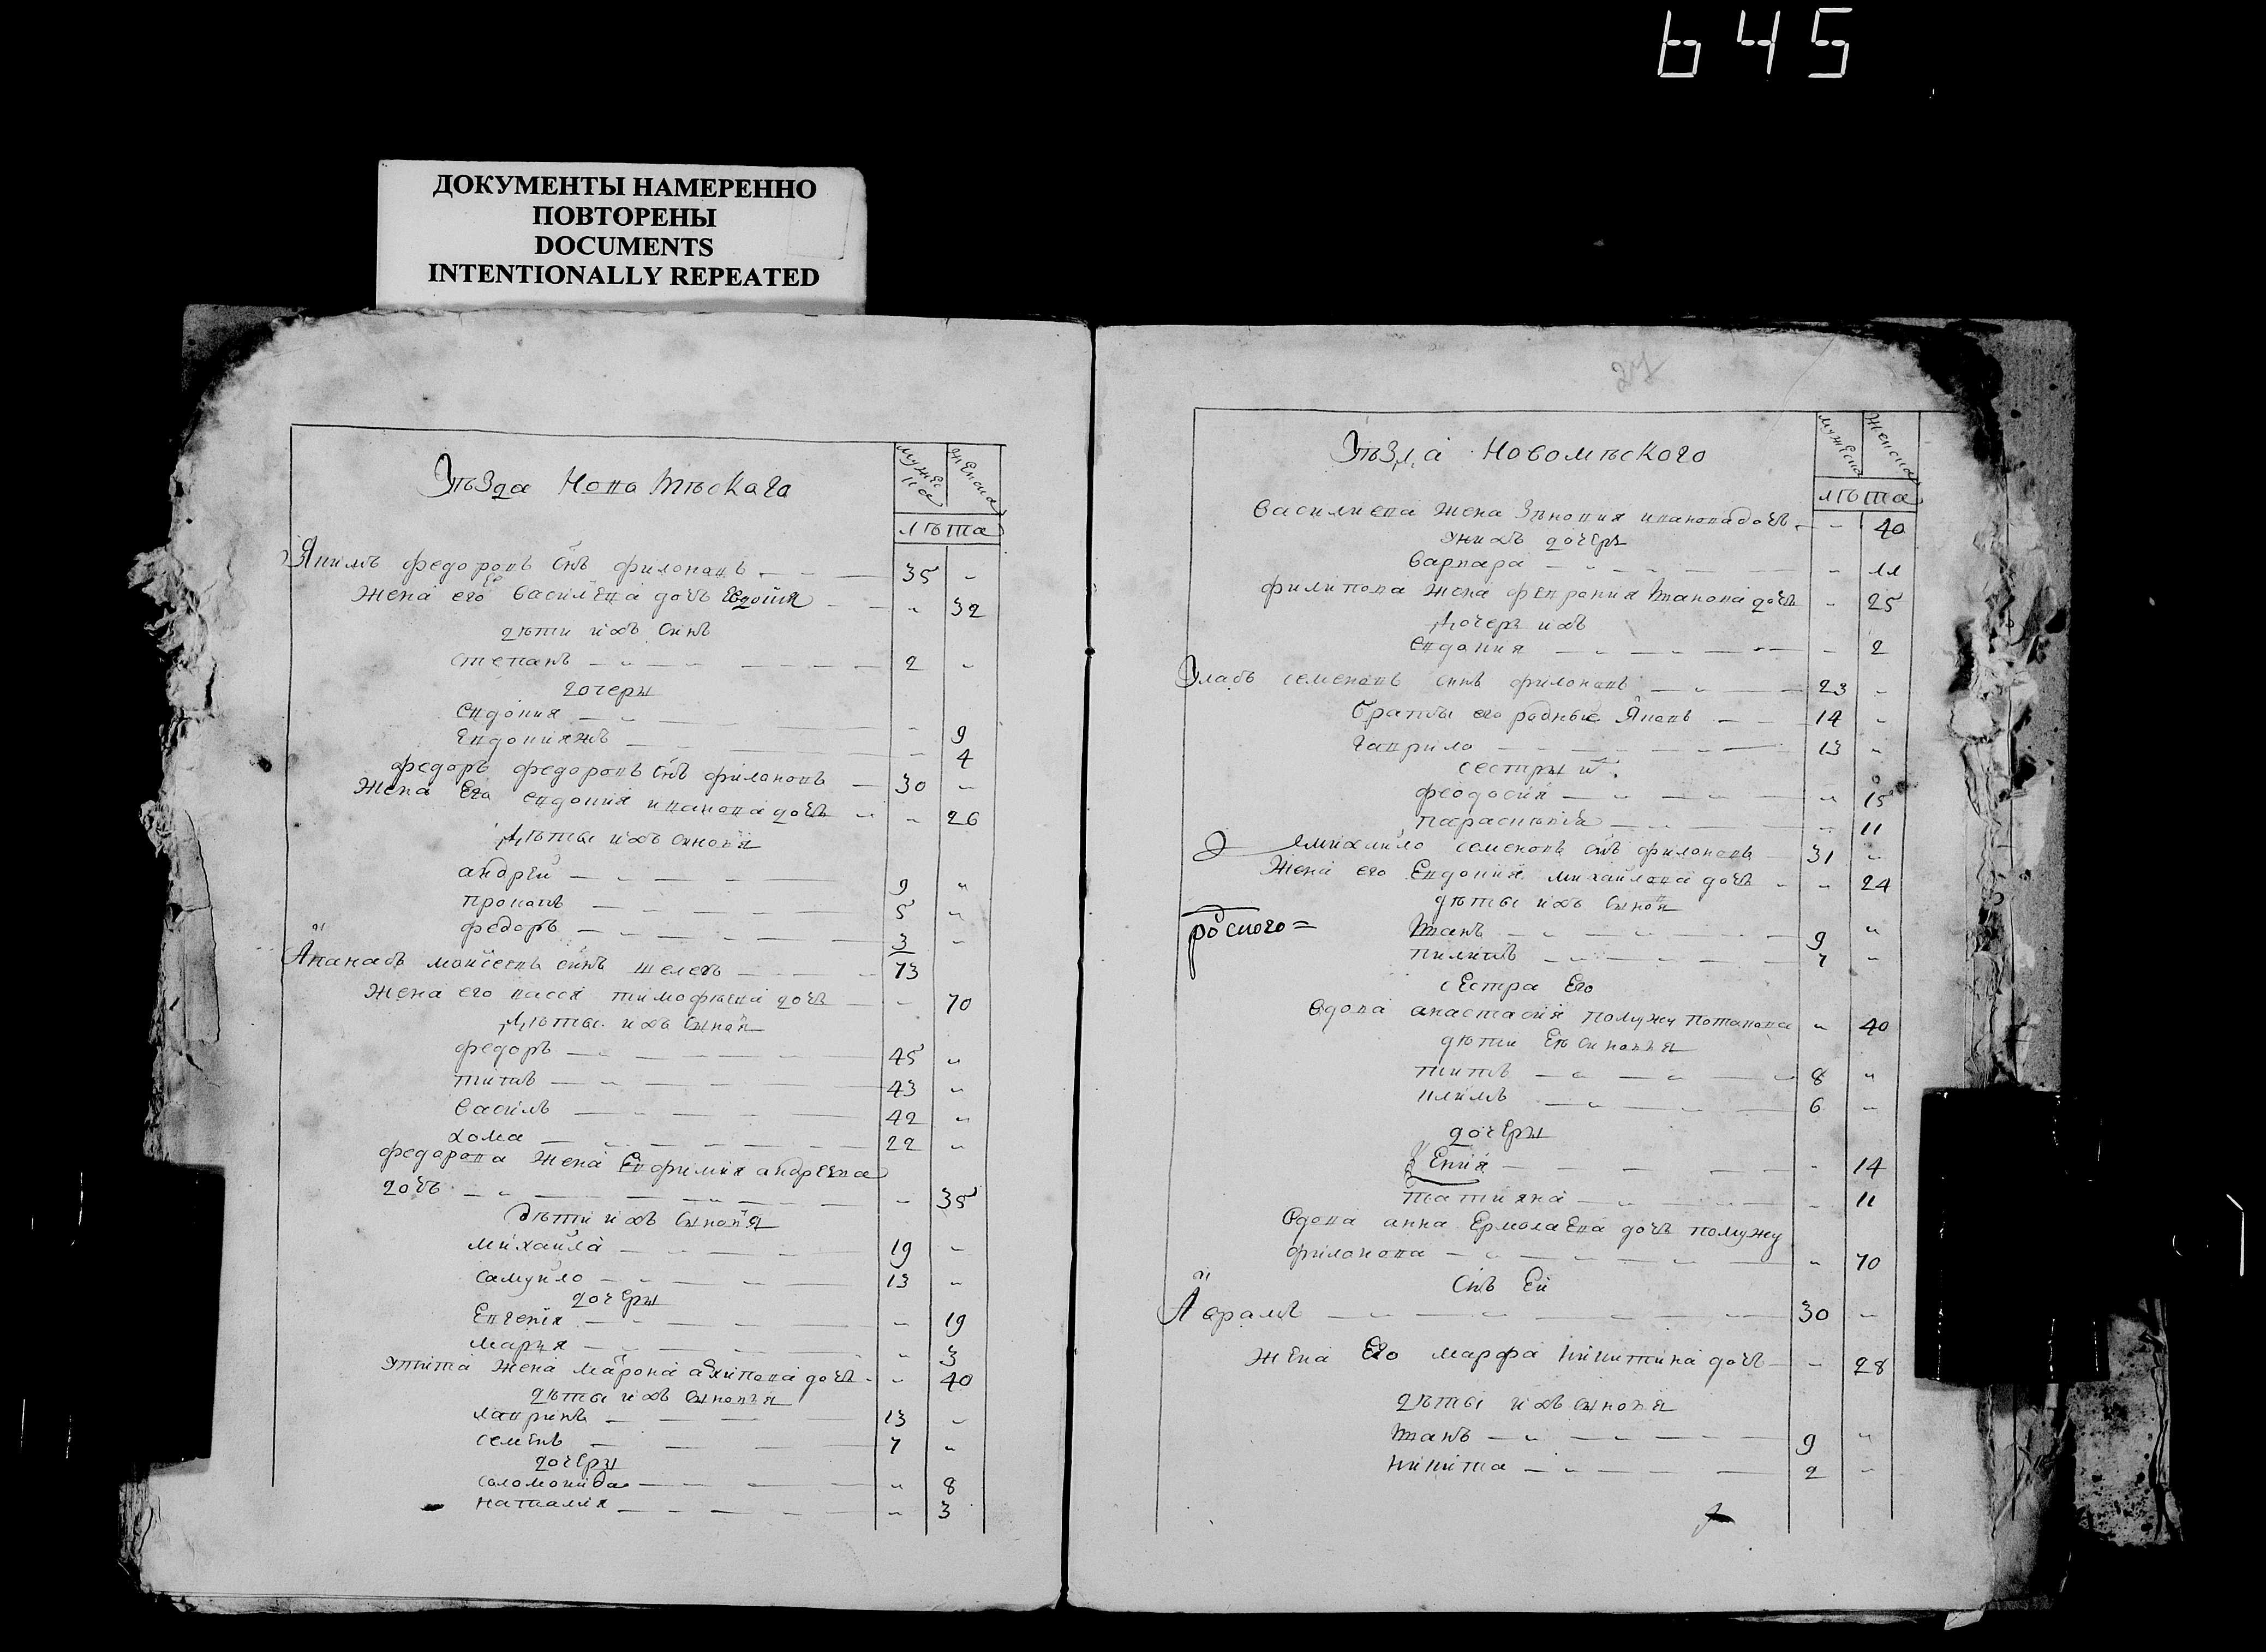 645
ДОКУМЕНТЫ НАМЕРЕННО
ПОВТОРЕНЫ
DOCUMENTS
INTENTIONALLY REPEATED
уѣзда новамѣскаго
мужеска
женска
лѣта
Якимъ федоровъ снъ филоновъ 35 „
жена его василева дочь евдокия „ 32
дѣти ихъ синъ
степанъ 2 „
дочеры
евдокия „ 9
евдокияжъ „ 4
федоръ федоровъ снъ филоновъ 30 „
жена его евдокия иванова дочь „ 26
дѣты ихъ синовя
андрей 9 „
прокапъ 5 „
федоръ 3 „
Апанасъ моисеевъ синъ 73
жена его васса тимофѣева дочь „ 70
дѣты ихъ сынов
федоръ 45 „
титъ 43 „
василь 42 „
хома 22 „
федарова жена ефимия андреева
дочь „ 35
дѣти ихъ сыновя
михайла 19 „
самуйло 13 „
дочеры
евгения „ 19
марья „ 3
жена марфа архипова дочь „ 40
дѣты ихъ сыновья
лавринъ 13 „
семенъ 7 „
дочеры
соломонида „ 8
наталия „ 3
27
уѣзда новомѣского
мужеска
женска
лѣта
василиева жена зѣновия иванова дочь „ 40
у нихъ дочеръ
варвара „ 11
филипова жена феврония иванова дочь „ 25
дочеръ ихъ
евдокия „ 2
Уласъ семеновъ синъ филоновъ 23 „
братъы его родные Яковъ 14 „
гаврило 13 „
сестры и
феодосия „ 15
параскевия „ 11
михайло семеновъ снъ филоновъ 31 „
жена его евдокия михайлова дочь „ 24
дѣты ихъ сынов
иванъ 9 „
пилипъ 7 „
сестра его
вдова анастасия помужу потапова „ 40
дѣти ее синовья
титъ 8 „
климъ 6 „
дочеры
ксения „ 14
татияна „ 11
вдова анна ермолаева дочь помужу
филонова „ 70
снъ ей
Аврамъ 30 „
жена его марфа никитина дочь „ 28
дѣты ихъ сыновя
иванъ 9 „
никита 2 „